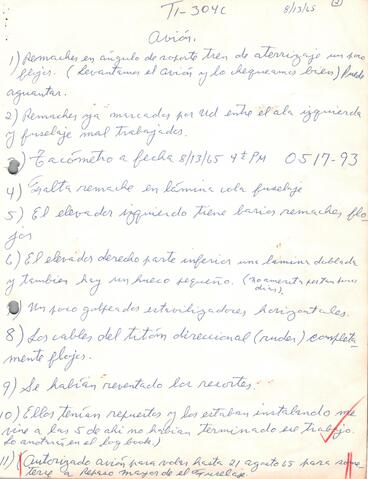 TI-304C 8/13/65 (2)
Avión.
1) Remaches en ángulo de soporte tren de aterrizaje un poco
flojos. (Levantamos el avión y lo chequeamos bien) Puede
aguantar.
2) Remaches ya marcados por Ud entre el ala izquierda
y fuselaje mal trabajados.
3) Tacómetro a fecha 8/13/65 4+ PM 0517-93
4) Falta remache en lámina cola fuselaje
5) El elevador izquierdo tiene barios remaches flo-
jos
6) El elevador derecho parte inferior una lamina doblada
y tambien hay un hueco pequeño. (no amerita por
dias).
7) Un poco golpeados estabilizadores horizontales.
8) Los cables del timón direccional (ruder) completa-
mente flojos.
9) Se habían reventado los resortes.
10) Ellos tenían repuestos y los estaban instalando me
vine a las 5 de ahi no habían terminado ese trabajo.
(lo anotarán en el log book.)
11) Autorizado avión para volar hasta 21 agosto 65 para some-
terse a Reparo mayor de el Fuselaje.